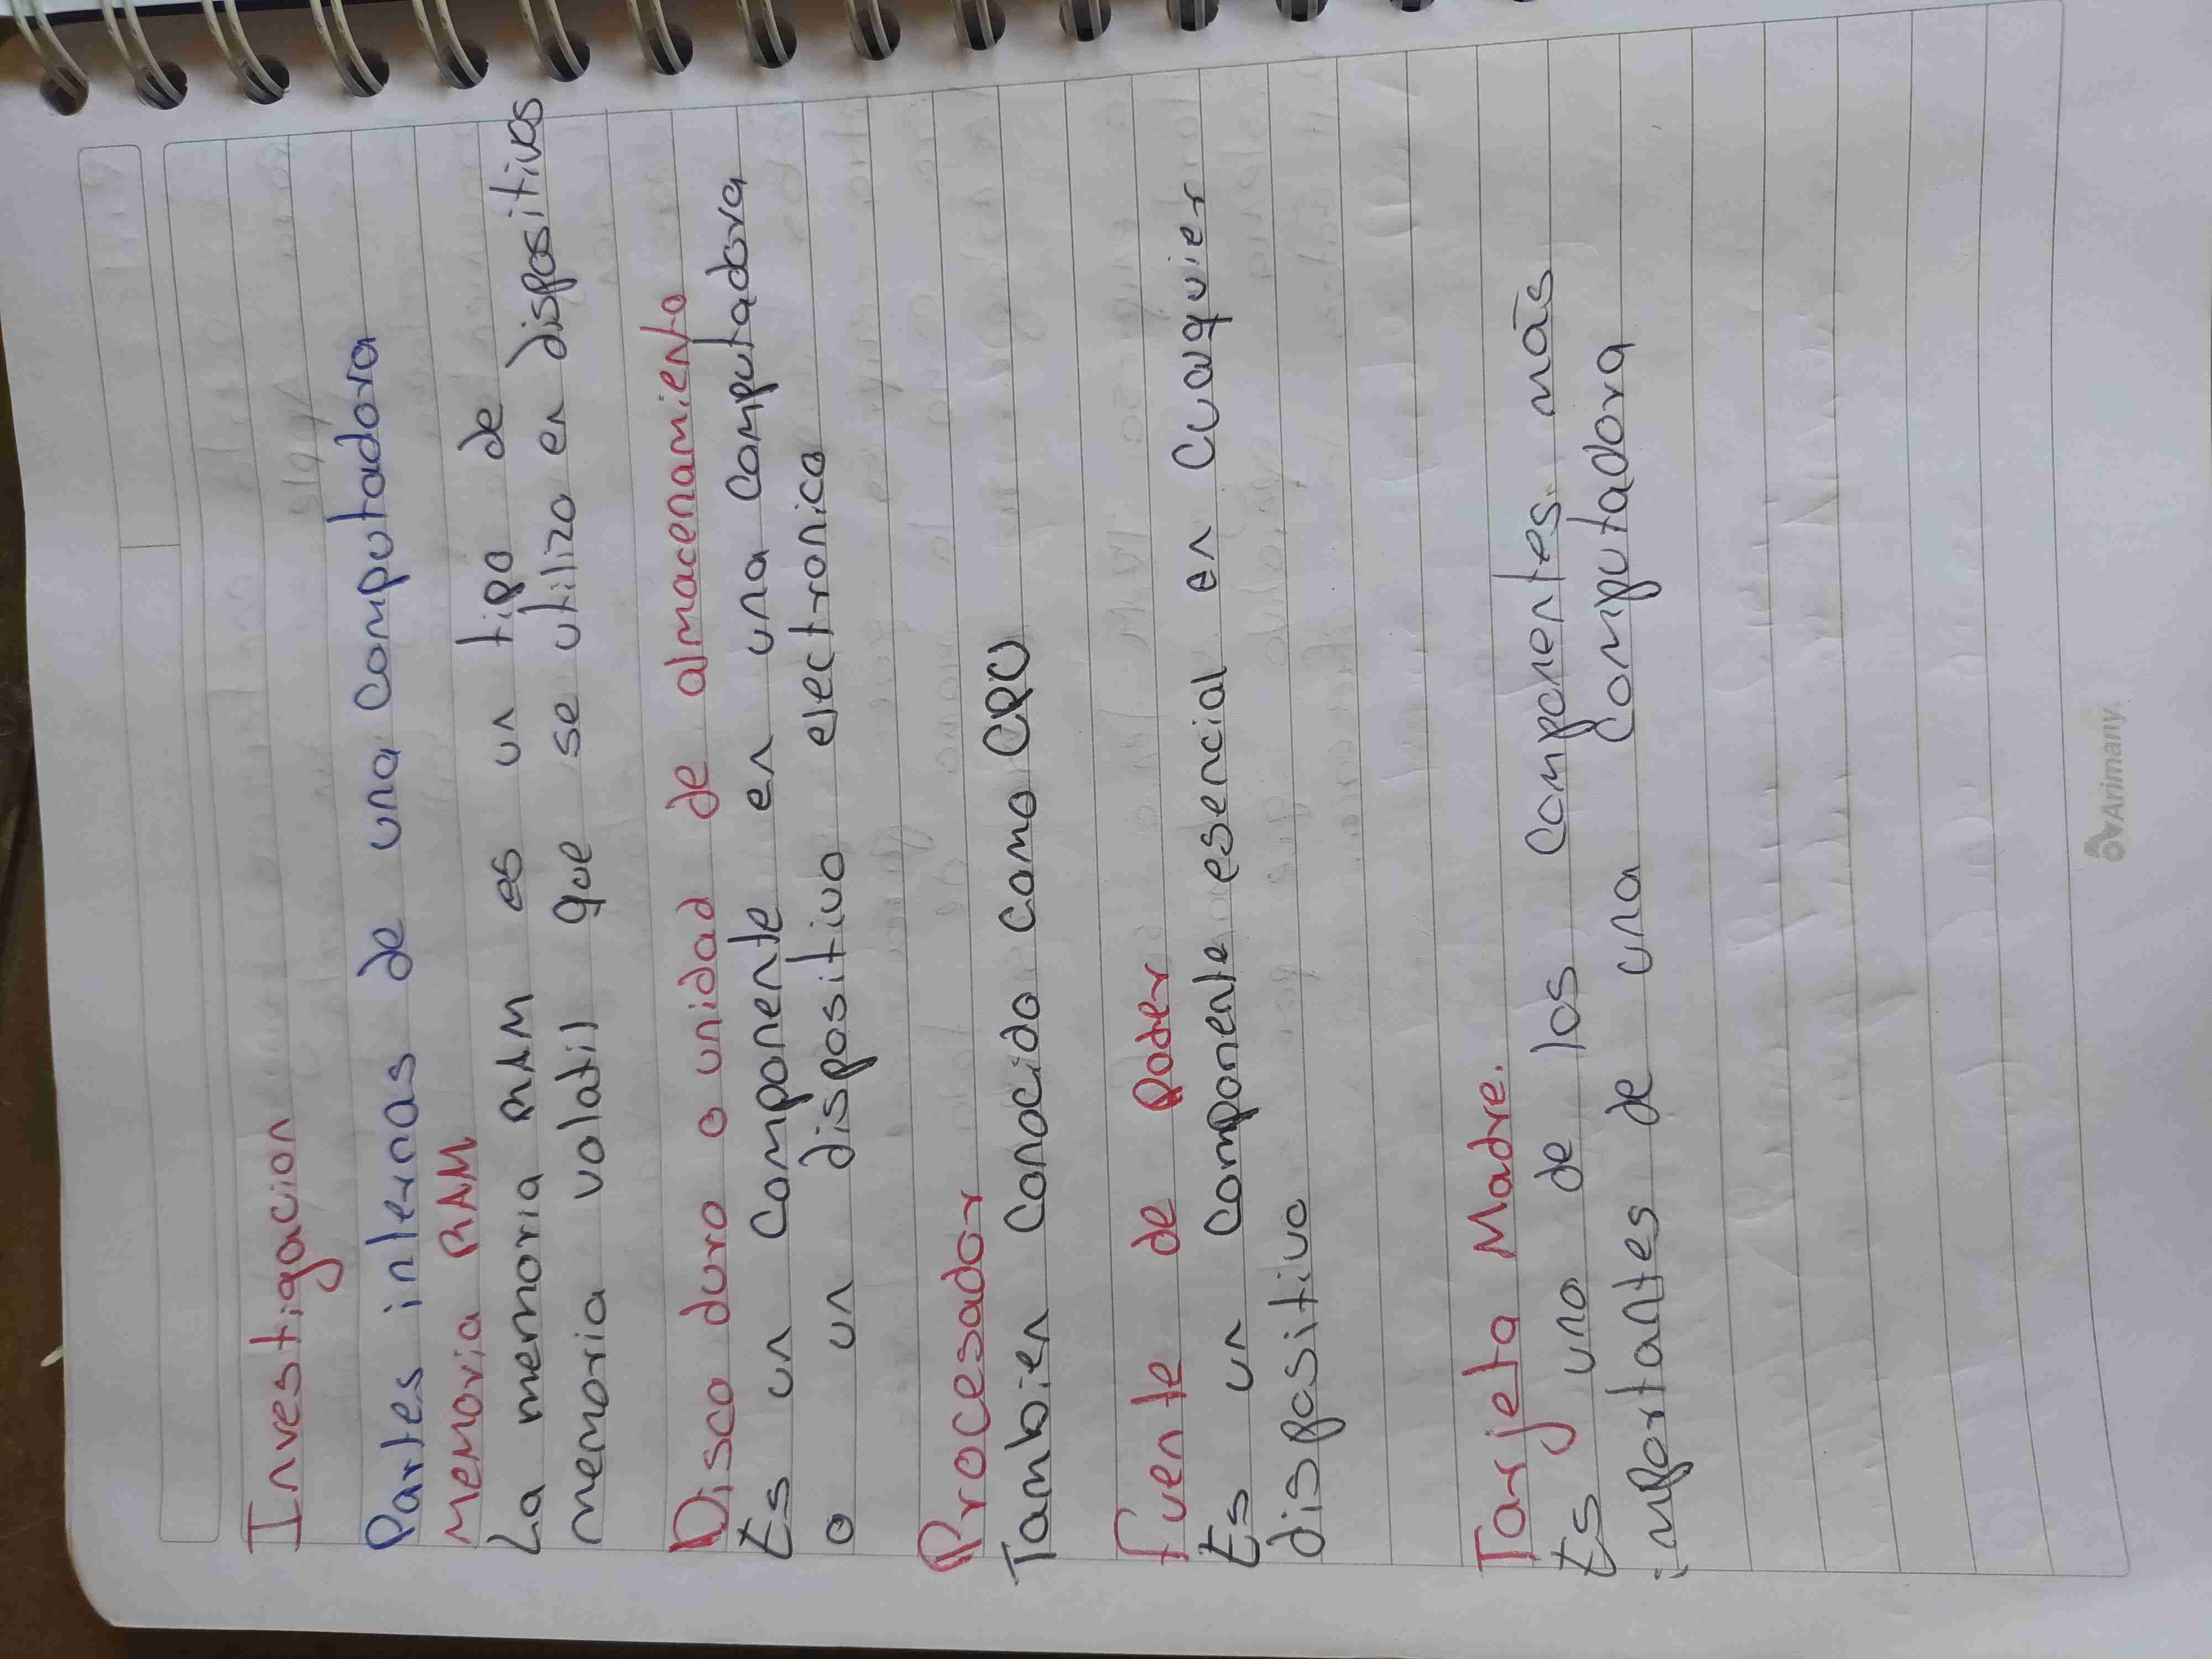 Investigacion
Partes internas de una computadora
Memoria RAM
La memoria RAM es un tipo de
memoria volatil que se utilizo en dispositivos
Disco duro o unidad de almacenamiento
Es un componente en una computadora
o un dispositivo electronico
Procesador
Tambien conocido como CPU
Fuente de poder
Es un componente esencial en cuaquier
dispositivo
Tarjeta Madre.
Es uno de los componentes más
importantes de una computadora
Arimany